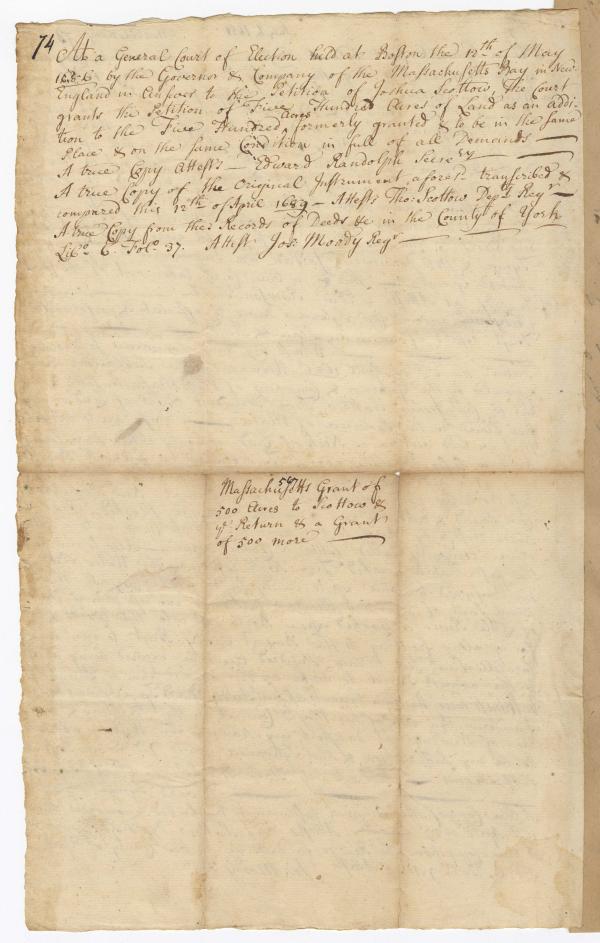 74 At a General Court of Election held at Boston the 12th of May
1686 by the Governor & Company of the Massachusetts Bay in New
England in Answer to the Petition of Joshua Scottow, The Court
grants the Petition of Five Hundred Acres of Land as an Addi-
tion to the Five Hundred Acres formerly granted & to be in the same
Place & on the same Condition in full of all Demands
A true Copy Attests Edward Randolph Secry
A true Copy of the Original Instrument aforesd transcribed &
compared this 12th of April 1689 - Attests Tho: Scottow Depty Regr
A true Copy from the Records of Deeds &c in the County of York
Libo 6. Folo 37. Attest Jos: Moody Regr
567
Massachusetts Grant of
500 Acres to Scottow &
ye Return & a Grant
of 500 more